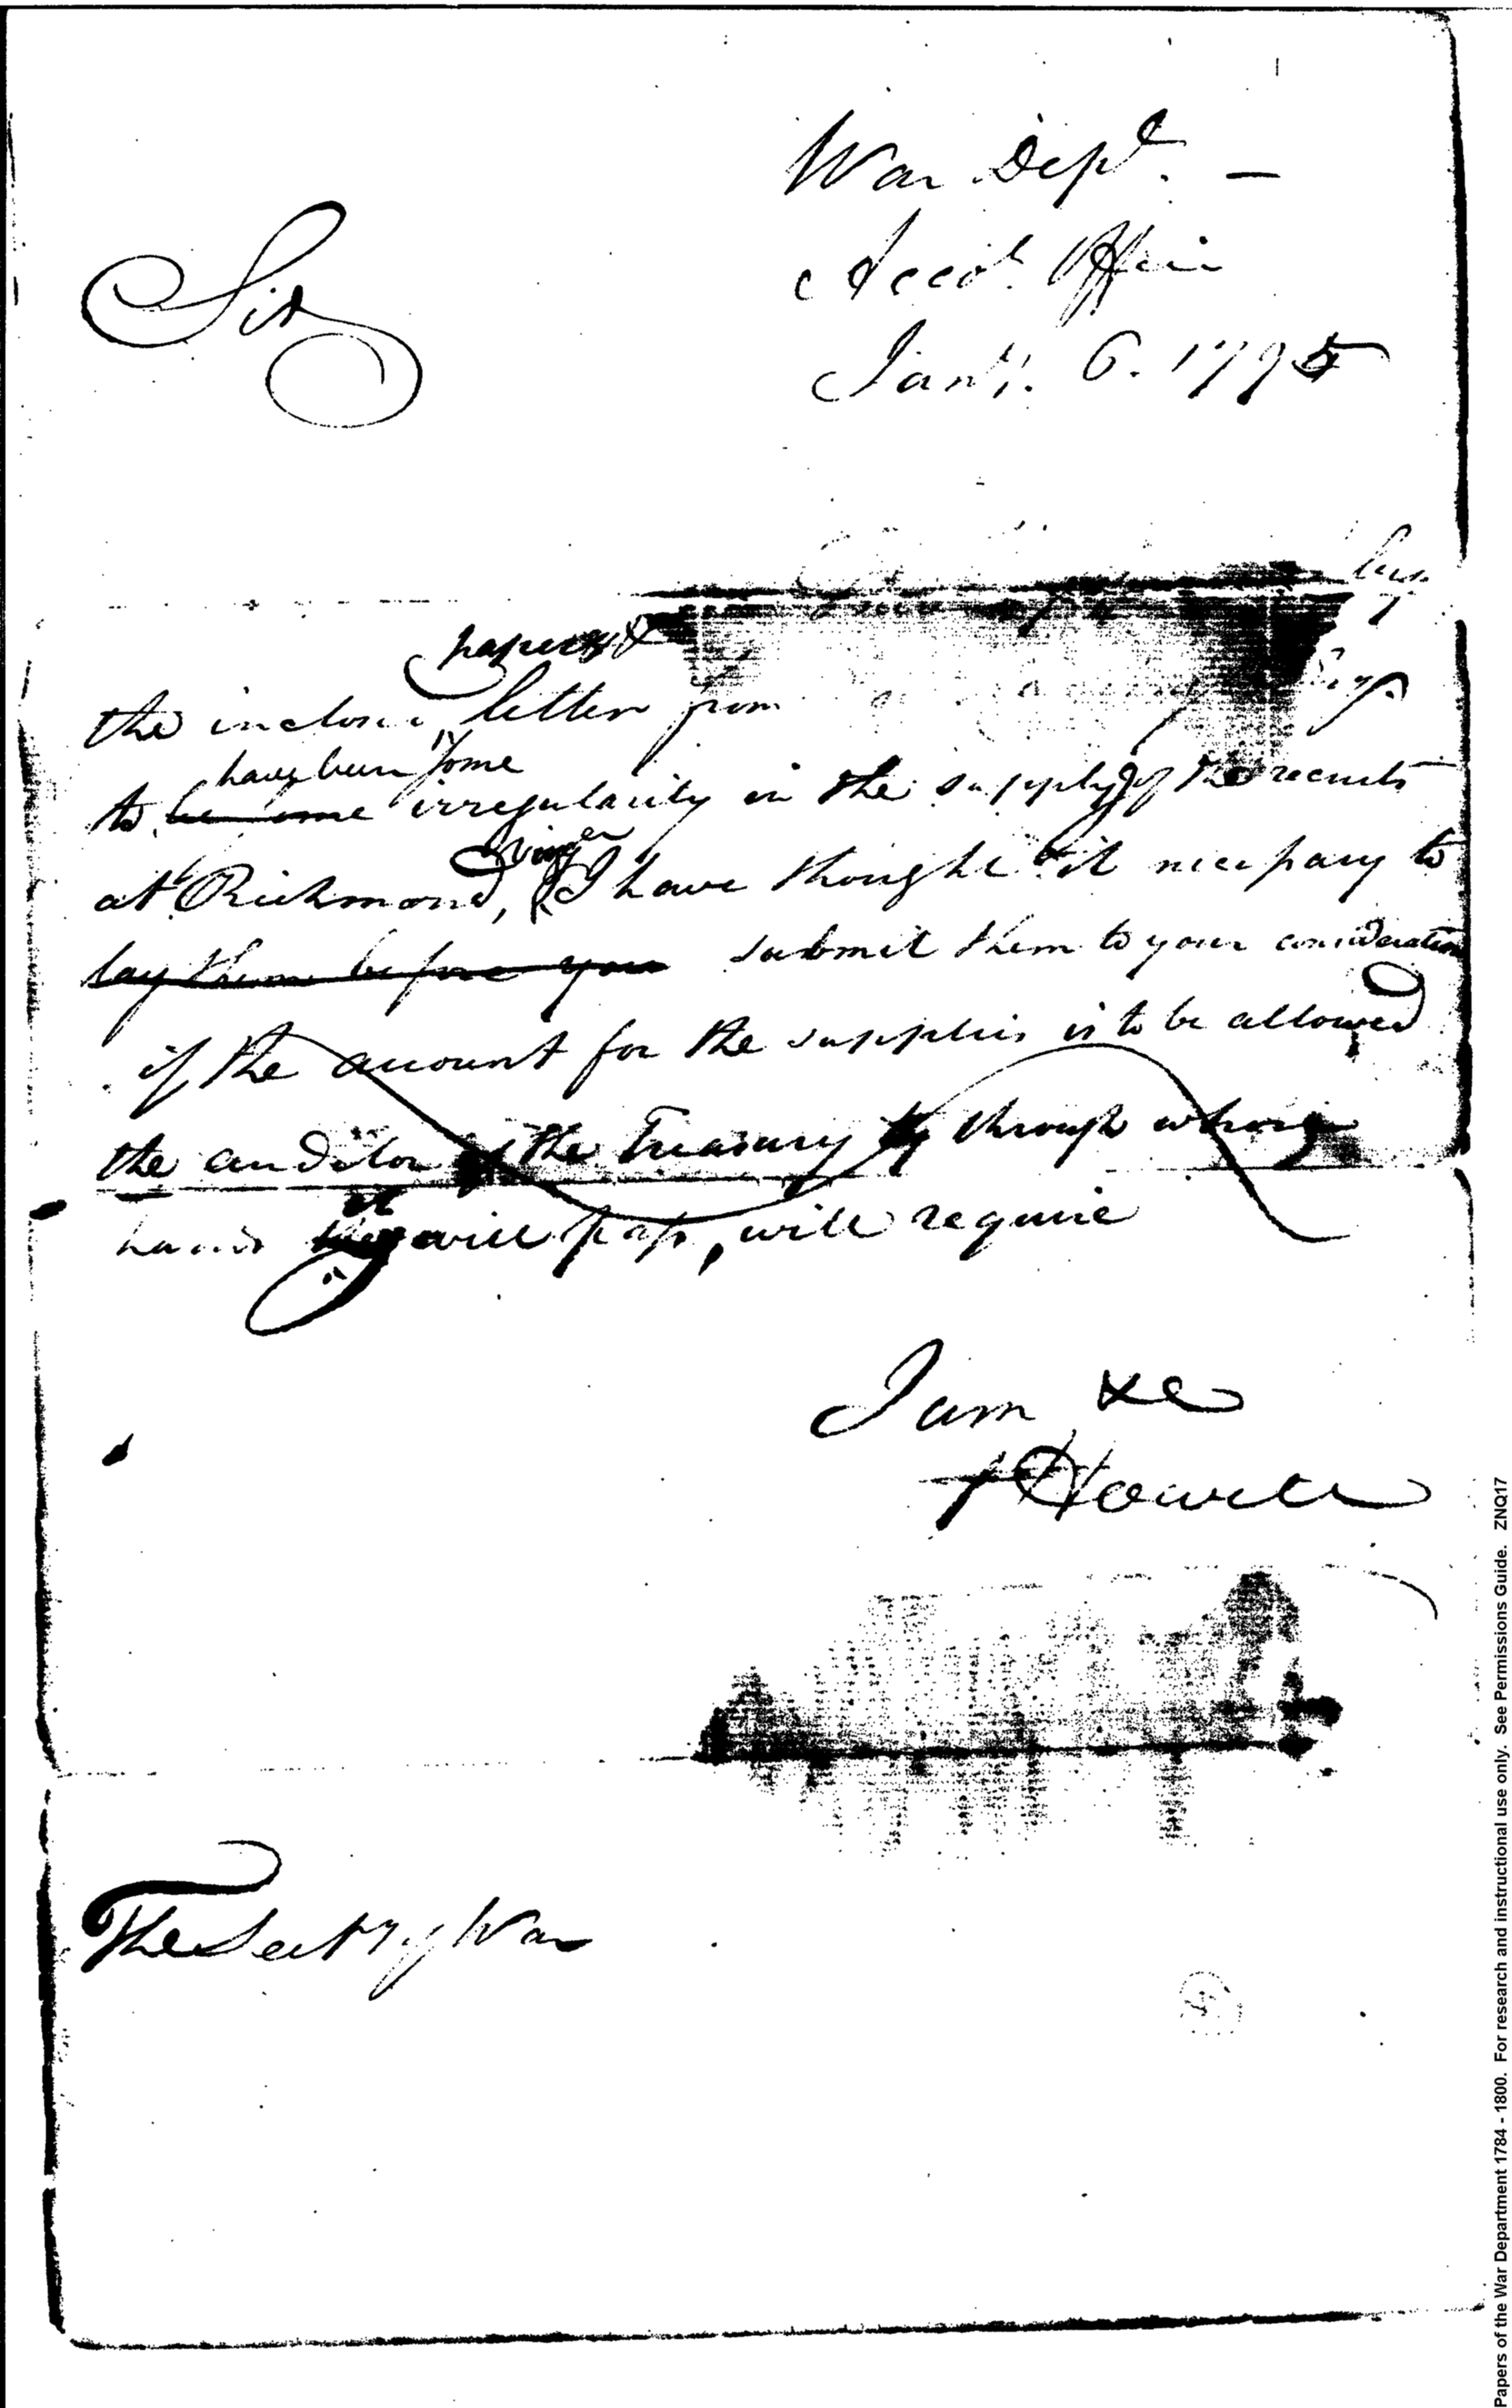 War Dept. —
Accots. Office
Sir
Jany. 6. 1795
papers &
the inclosed letter from
have been some
to be some irregularity in the supply of the recruits
at Richmond, I have thought it necessary to
lay them before you submit them to your consideration
if the account for the supplies is to be allowed
the auditor of the Treasury through whose
hands it will pass, will require
I am &c
J Howell
The Secty of War
Papers of the War Department 1784 - 1800. For research and instructional use only. See Permissions Guide. ZNQ17